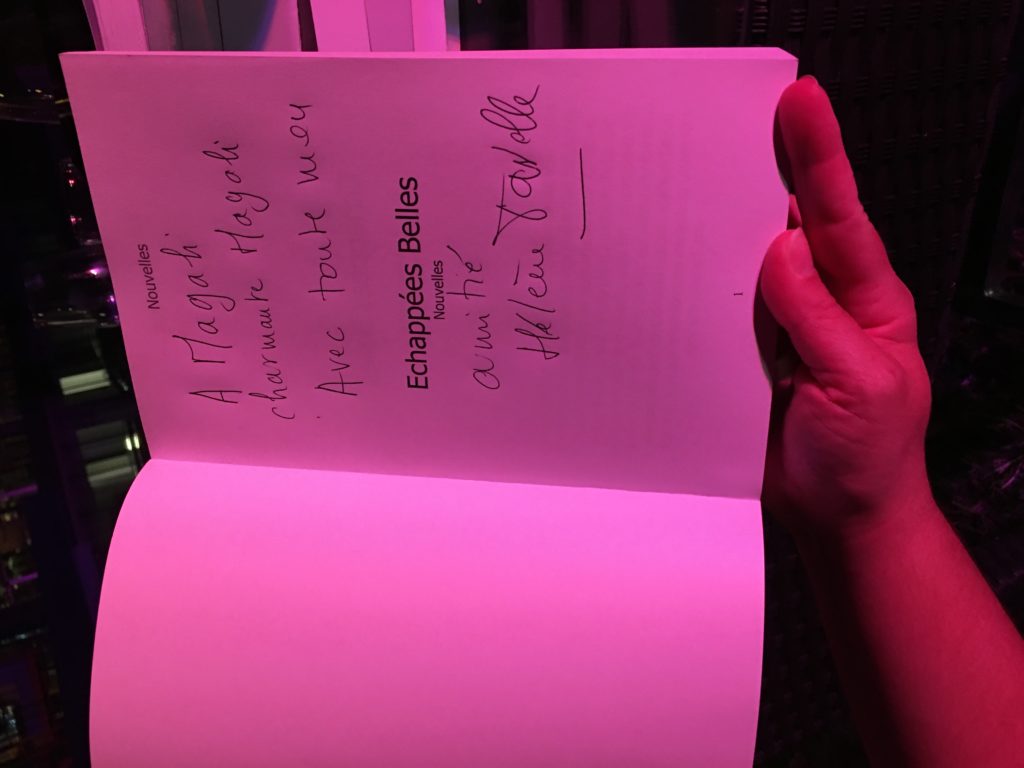 Nouvelles
A Magali
charmante Magali
Avec toute mon
Echappées Belles
Nouvelles
amitié
Hélène
1